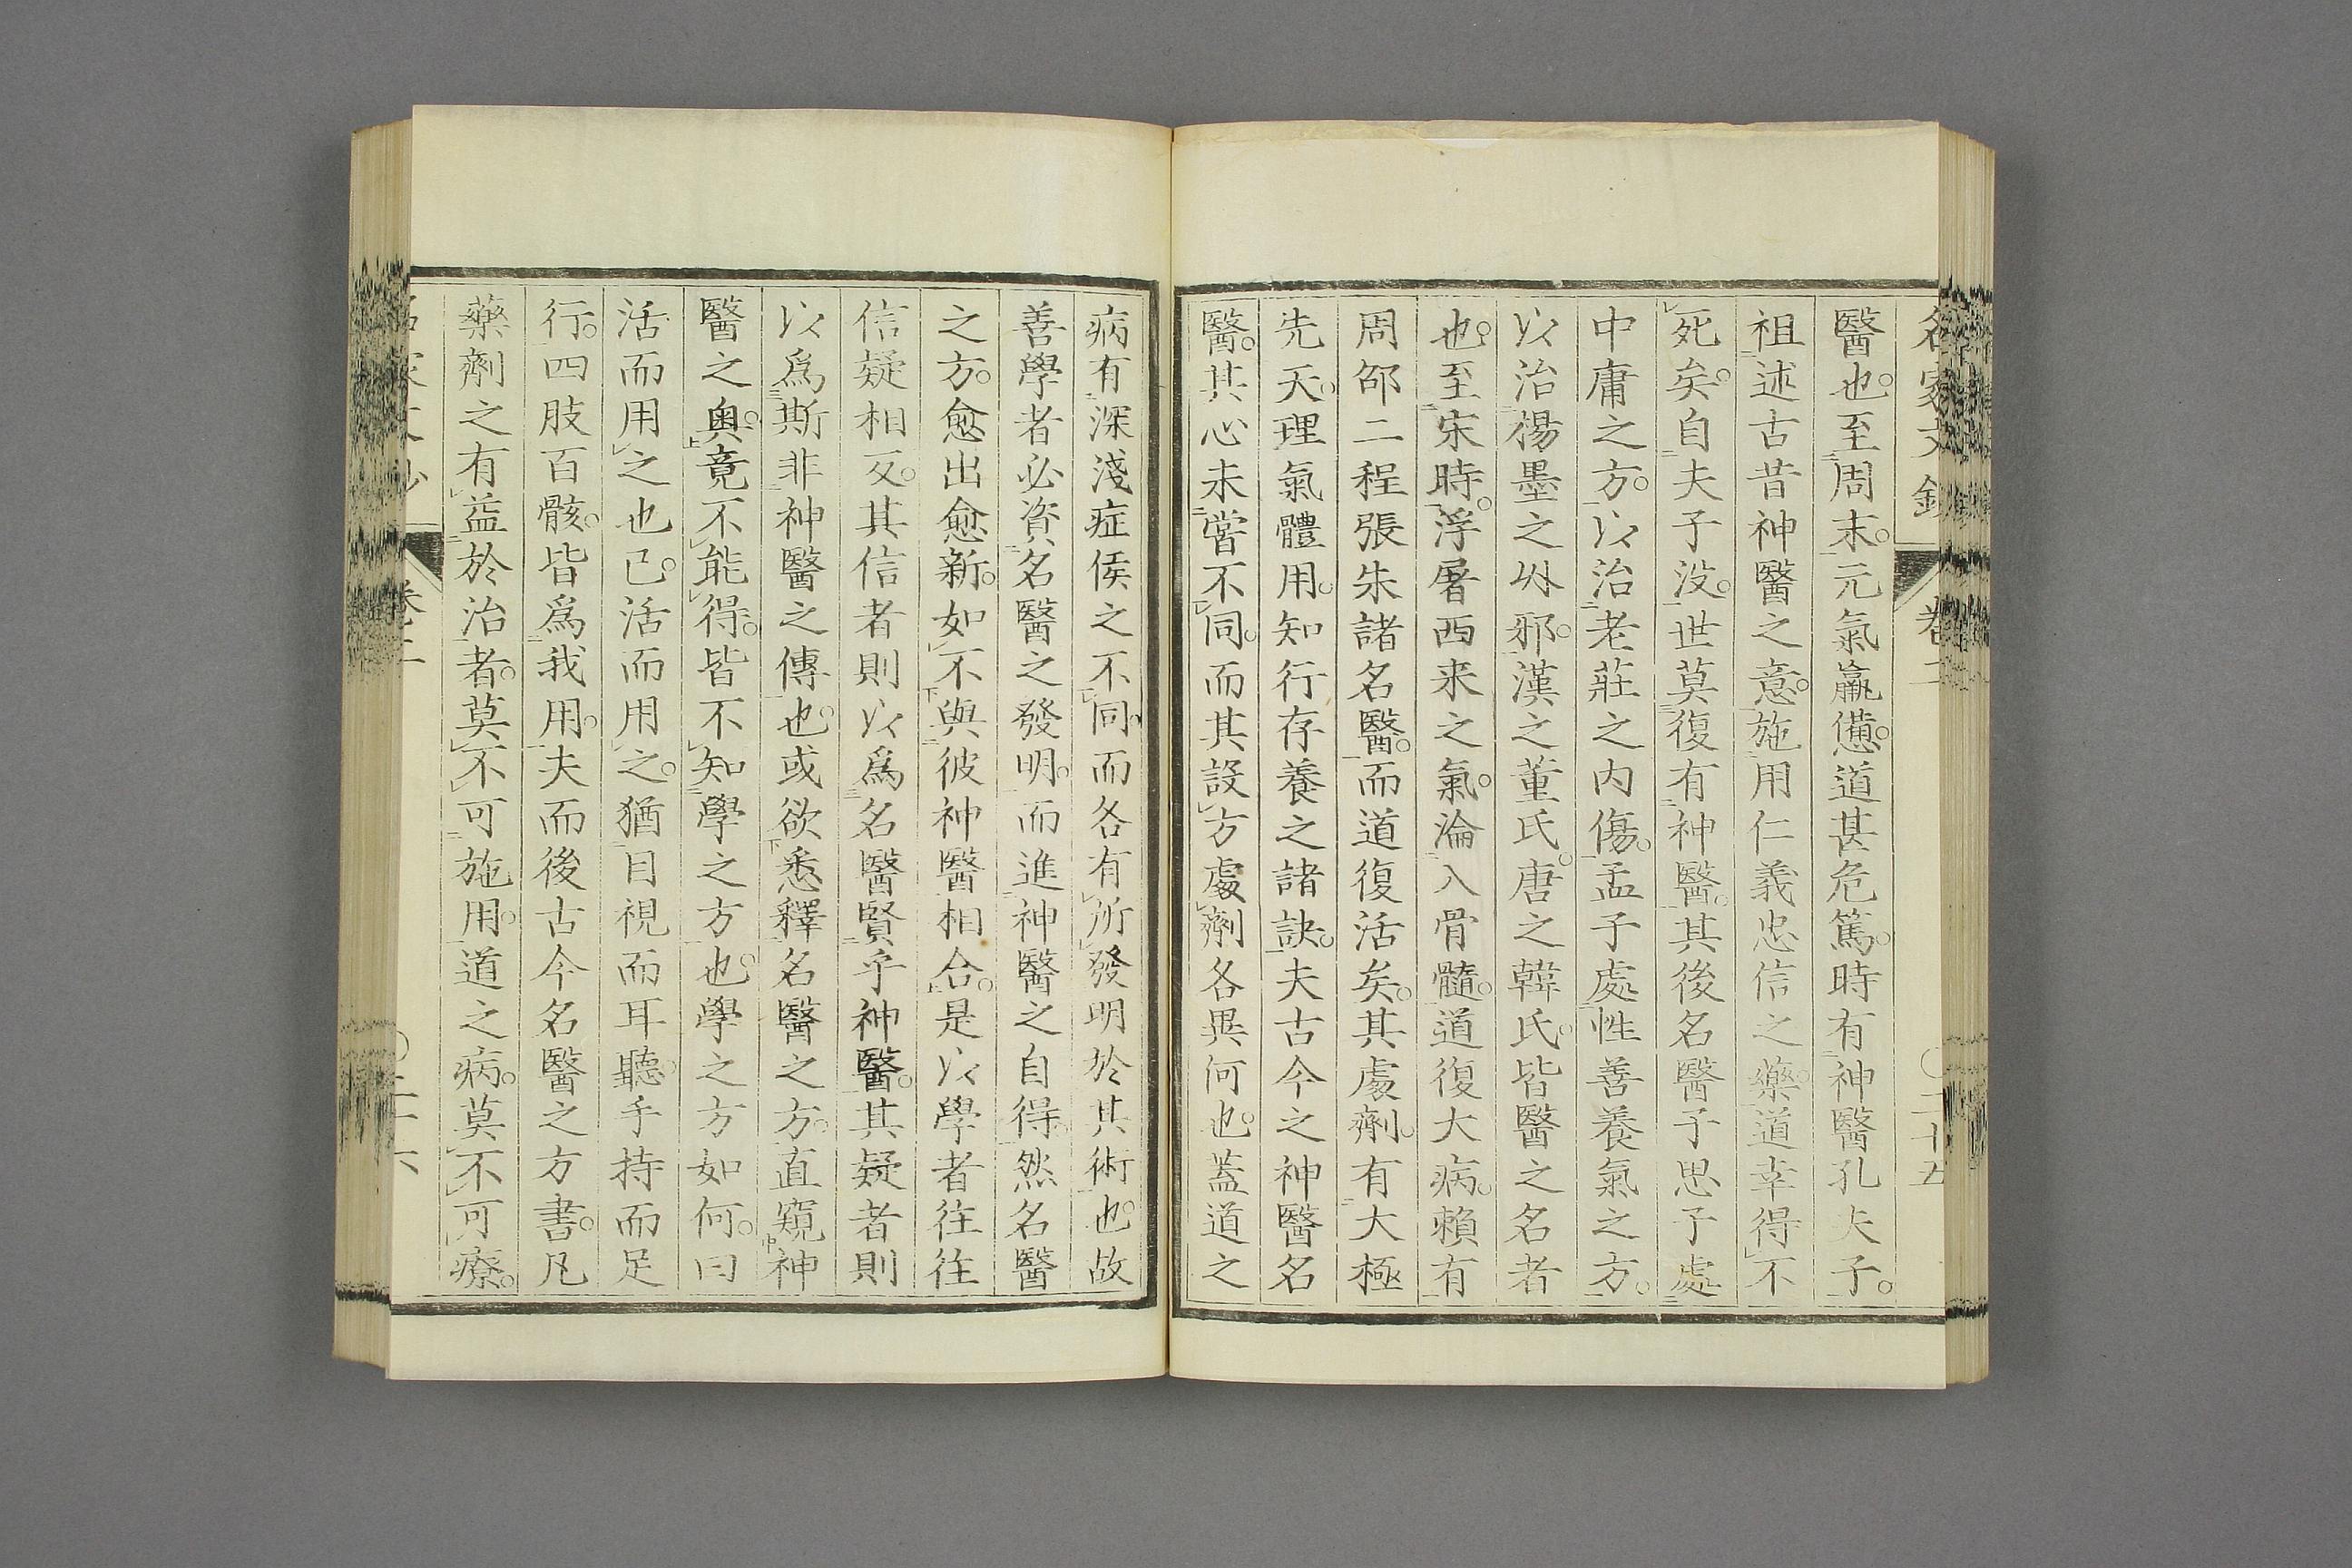 名家文鈔 卷二 〇二十五
醫也。至周末。元氣羸憊。道甚危篤。時有神醫孔夫子。
祖述古昔神醫之意。施用仁義忠信之藥。道幸得不
死矣。自夫子没。世莫復有神醫。其後名醫子思子處
中庸之方。以治老莊之内傷。孟子處性善養氣之方。
以治楊墨之外邪。漢之董氏。唐之韓氏。皆醫之名者
也。至宋時。浮屠西来之氣。淪入骨髓。道復大病。頼有
周邵二程張朱諸名醫。而道復活矣。其處劑。有大極
先天。理氣體用。知行存養之諸訣。夫古今之神醫名
醫。其心未嘗不同。而其設方處劑各異何也。蓋道之
病有深淺症侯之不同。而各有所發明於其術也。故
善學者必資名醫之發明。而進神醫之自得。然名醫
之方。愈出愈新。如不與彼神醫相合。是以學者往往
信疑相反。其信者則以爲名醫賢乎神醫。其疑者則
以爲斯非神醫之傳也。或欲悉釋名醫之方。直窺神
醫之奥。竟不能得。皆不知學之方也。學之方如何。曰
活而用之也已。活而用之。猶目視而耳聽。手持而足
行。四肢百骸。皆爲我用。夫而後古今名醫之方書。凡
藥劑之有益於治者。莫不可施用。道之病。莫不可療。